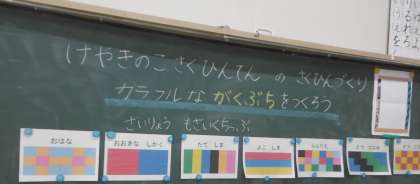 けやきのこ さくひんてん の さくひんづくり
カラフルな がくぶちをつくろう
ざいりょう もざいくちっぷ
おはな
おおきな しかく
たて しま
よこ しま